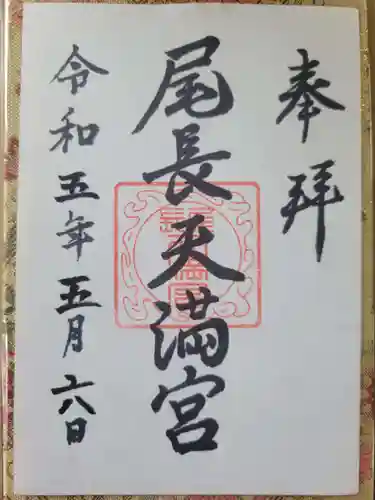 奉拝
尾長天満宮
令和五年五月十八日